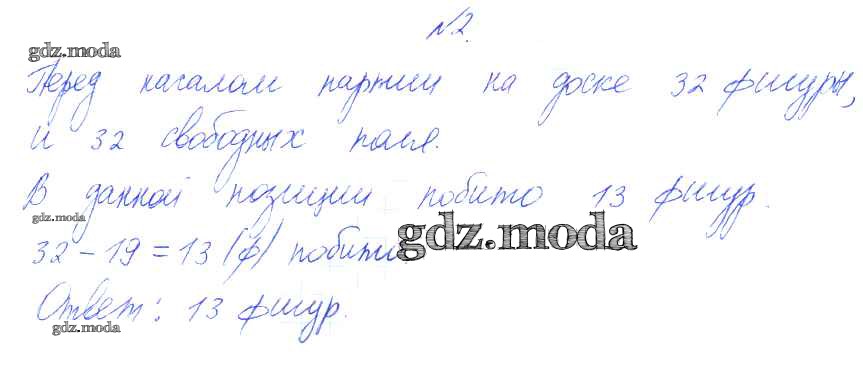 №2.
gdz.moda
Перед началом партии на доске 32 фигуры,
и 32 свободных поля.
В данной позиции побито 13 фигур.
gdz.moda
gdz.moda
32 - 19 = 13 (ф) побито
Ответ: 13 фигур.
gdz.moda